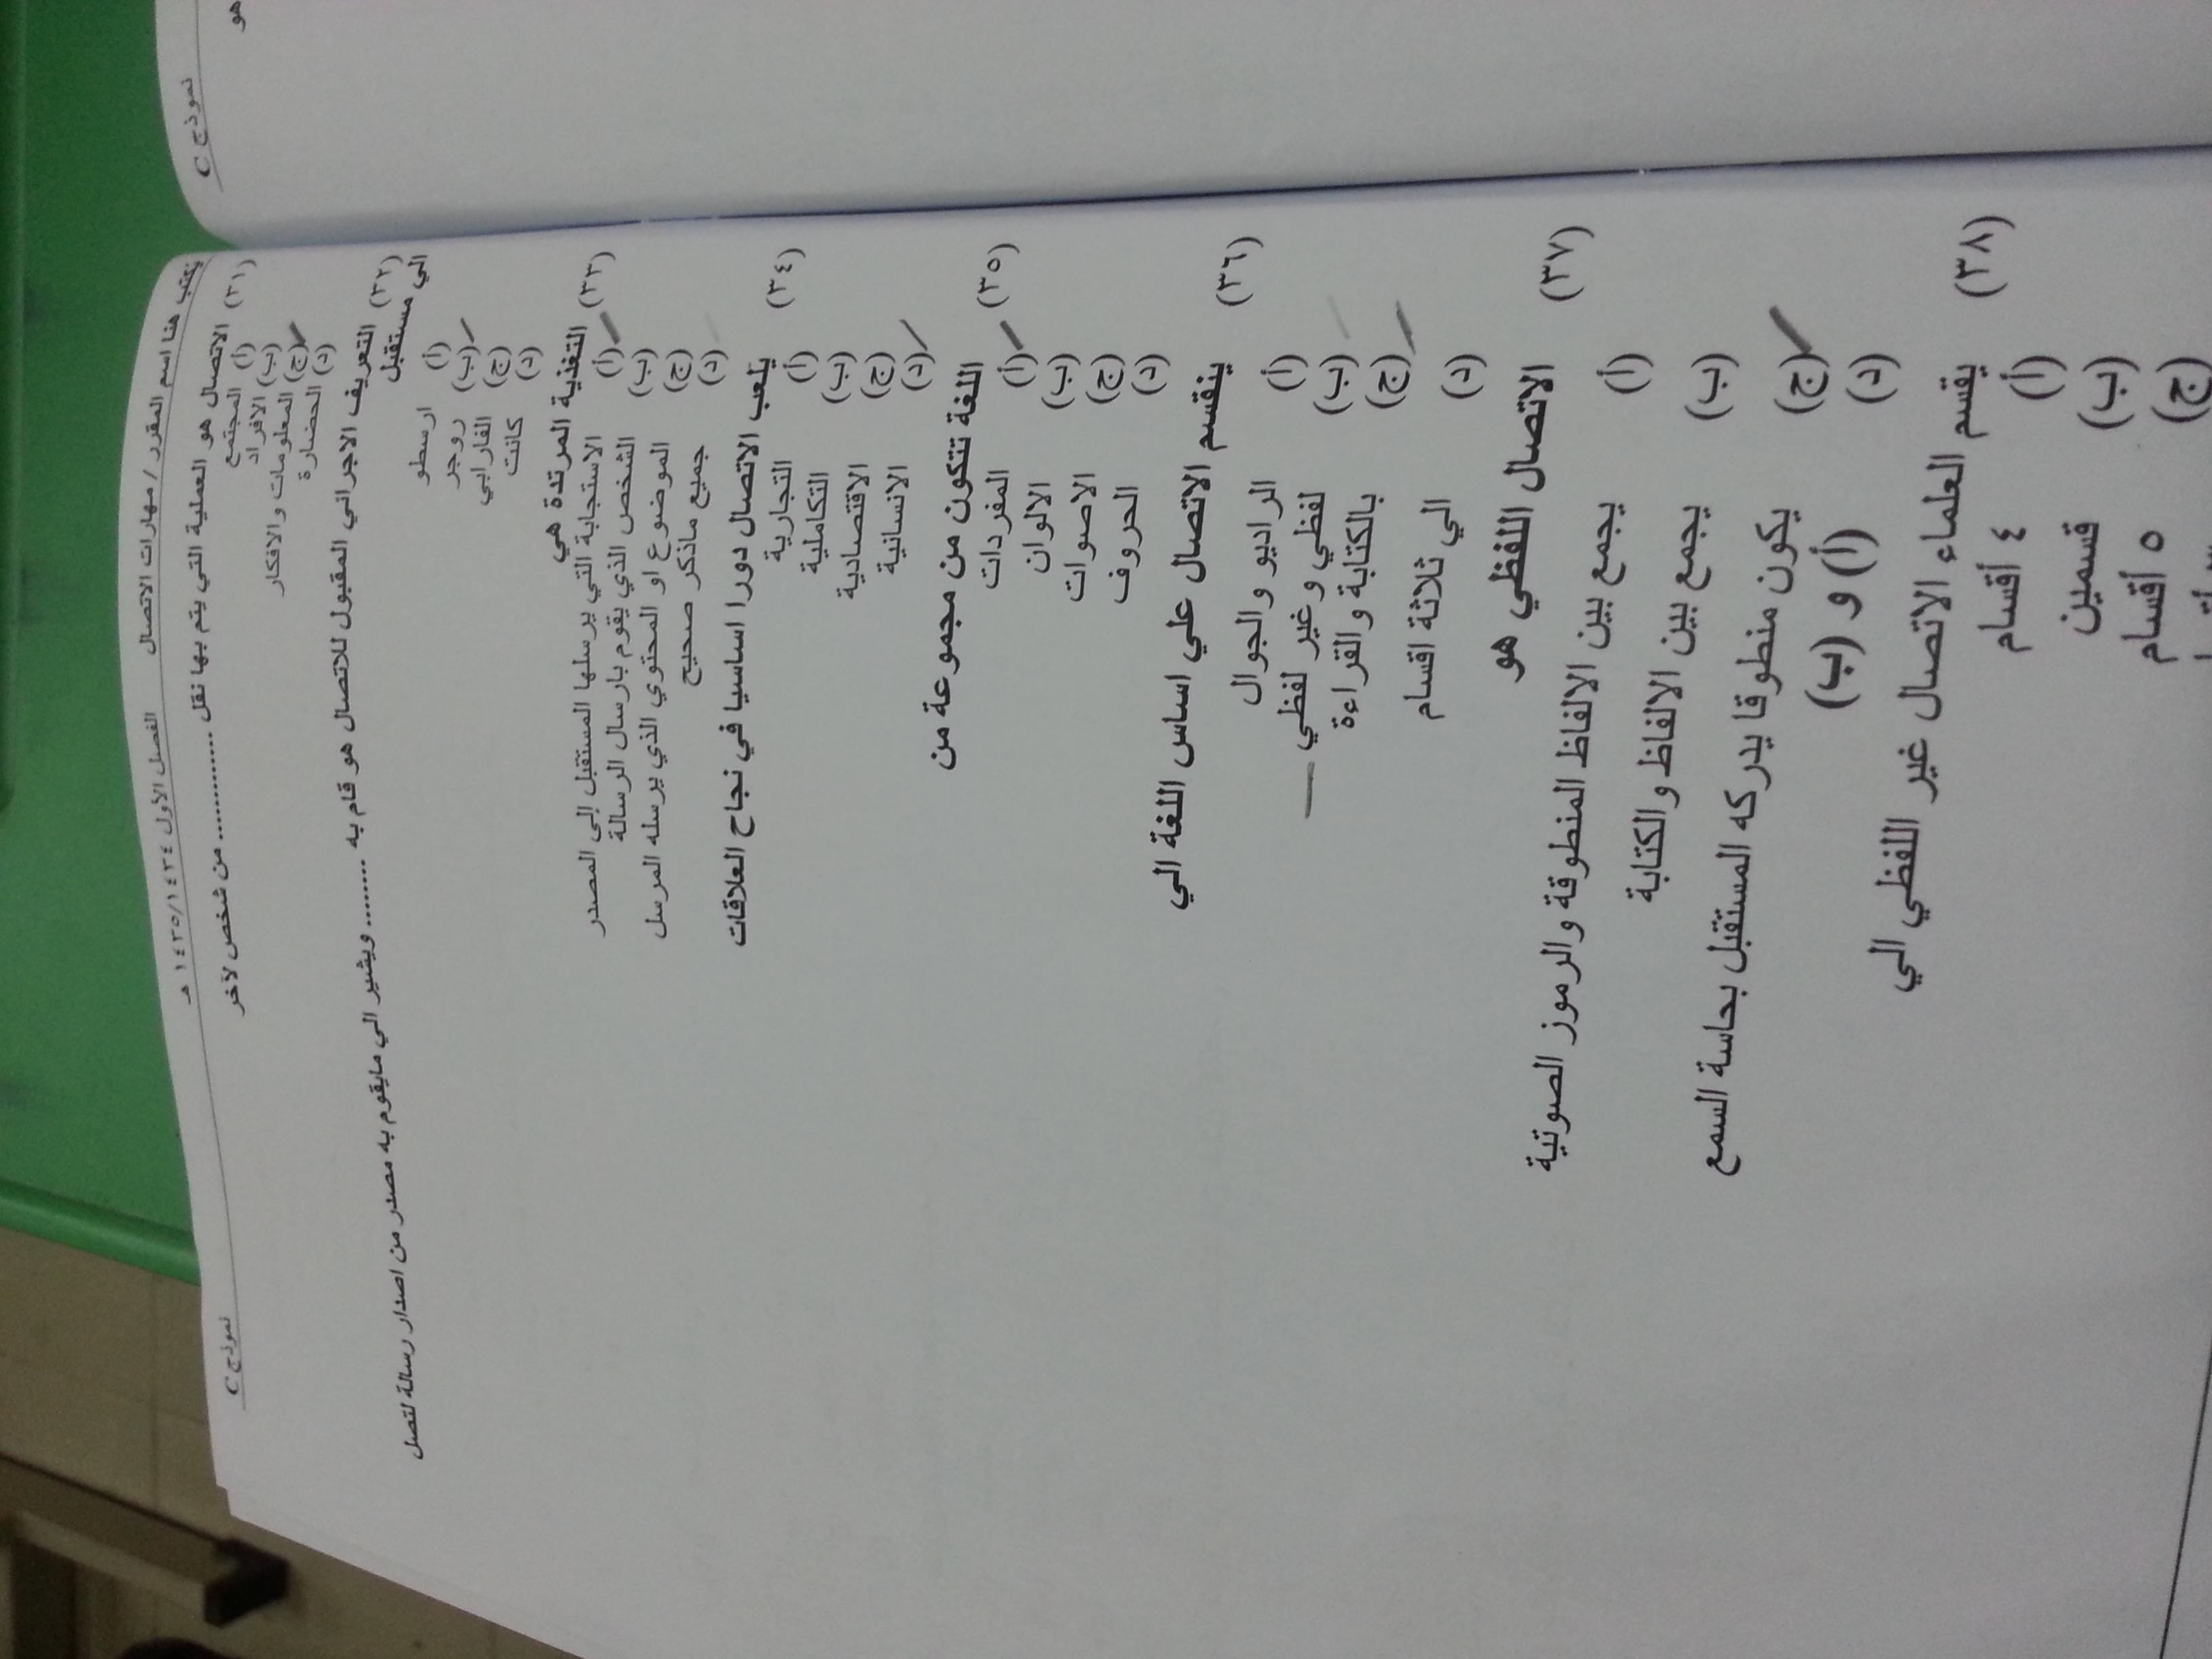 يكتب هنا اسم المقرر / مهارات الاتصال الفصل الأول ١٤٣٥/١٤٣٤ هـ نموذج C
(٣١) الاتصال هو العملية التي يتم بها نقل ............ من شخص لآخر
(أ) المجتمع
(ب) الافراد
(ج) المعلومات والافكار
(د) الحضارة
(٣٢) التعريف الاجرائي المقبول للاتصال هو قام به ........ ويشير الي مايقوم به مصدر من اصدار رسالة لتصل
الي مستقبل
(أ) ارسطو
(ب) روجر
(ج) الفارابي
(د) كانت
(٣٣) التغذية المرتدة هي
(أ) الاستجابة التي يرسلها المستقبل إلى المصدر
(ب) الشخص الذي يقوم بارسال الرسالة
(ج) الموضوع او المحتوي الذي يرسله المرسل
(د) جميع ماذكر صحيح
(٣٤) يلعب الاتصال دورا اساسيا في نجاح العلاقات
(أ) التجارية
(ب) التكاملية
(ج) الاقتصادية
(د) الانسانية
(٣٥) اللغة تتكون من مجموعة من
(أ) المفردات
(ب) الالوان
(ج) الاصوات
(د) الحروف
(٣٦) ينقسم الاتصال علي اساس اللغة الي
(أ) الراديو والجوال
(ب) لفظي وغير لفظي
(ج) بالكتابة والقراءة
(د) الي ثلاثة اقسام
(٣٧) الاتصال اللفظي هو
(أ) يجمع بين الالفاظ المنطوقة والرموز الصوتية
(ب) يجمع بين الالفاظ والكتابة
(ج) يكون منطوقا يدركه المستقبل بحاسة السمع
(د) (أ) و (ب)
(٣٨) يقسم العلماء الاتصال غير اللفظي الي
(أ) ٤ أقسام
(ب) قسمين
(ج) ٥ أقسام
نموذج C
هو